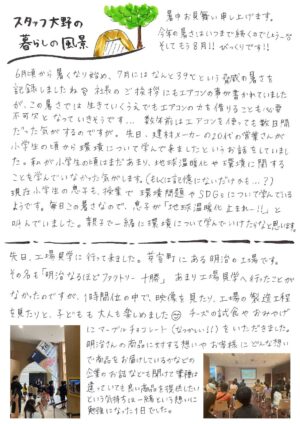 スタッフ大野の
暮らしの風景
暑中お見舞い申し上げます。
今年の暑さはいつまで続くのでしょう…
そしてもう8月!! びっくりです!!
6月頃から暑くなり始め、7月には なんと39℃という 暑さを
記録しましたね 社長の ごあ拶にもエアコンの事が書かれていました
が、この暑さでは 生きていくうえでもエアコンの力を借りることも必要
不可欠と なっていきそうです… 数年前はエアコンを使っても数日間
だった気がするのですが。 先日、建材メーカーの20代の営業さんが
小学生の頃から環境について学んで来ましたというお話をしていまし
た。私が小学生の頃はまだあまり、地球温暖化や環境に関する
ことを学んでいなかった気がします。(もしくは記憶にないだけかも…?)
現在小学生の息子も、授業で 環境問題やSDGsについて学んでいる
ようです。毎日この暑さなので、息子が「地球温暖化 止まれー!!」と
叫んでいました。親子で一緒に環境について学んでいけたらなと思います。
先日、工場見学に行って来ました。芽室町にある明治の工場です。
その名も「明治なるほどファクトリー十勝」 あまり工場見学へ行ったことが
なかったのですが、1時間位の中で、映像を見たり、工場の製造工程
を見たりと、子どもも大人も楽しめました チーズの試食やおみやげ
にマーブルチョコレート(なつかしい!!)もいただきました。
明治さんの商品に対する想いやお客様にどんな想い
で商品をお届けしているかなどの
企業のお話なども聞けて業種は
違っていても良い商品を提供したい
という気持ちは一緒という想いに
勉強になった1日でした。